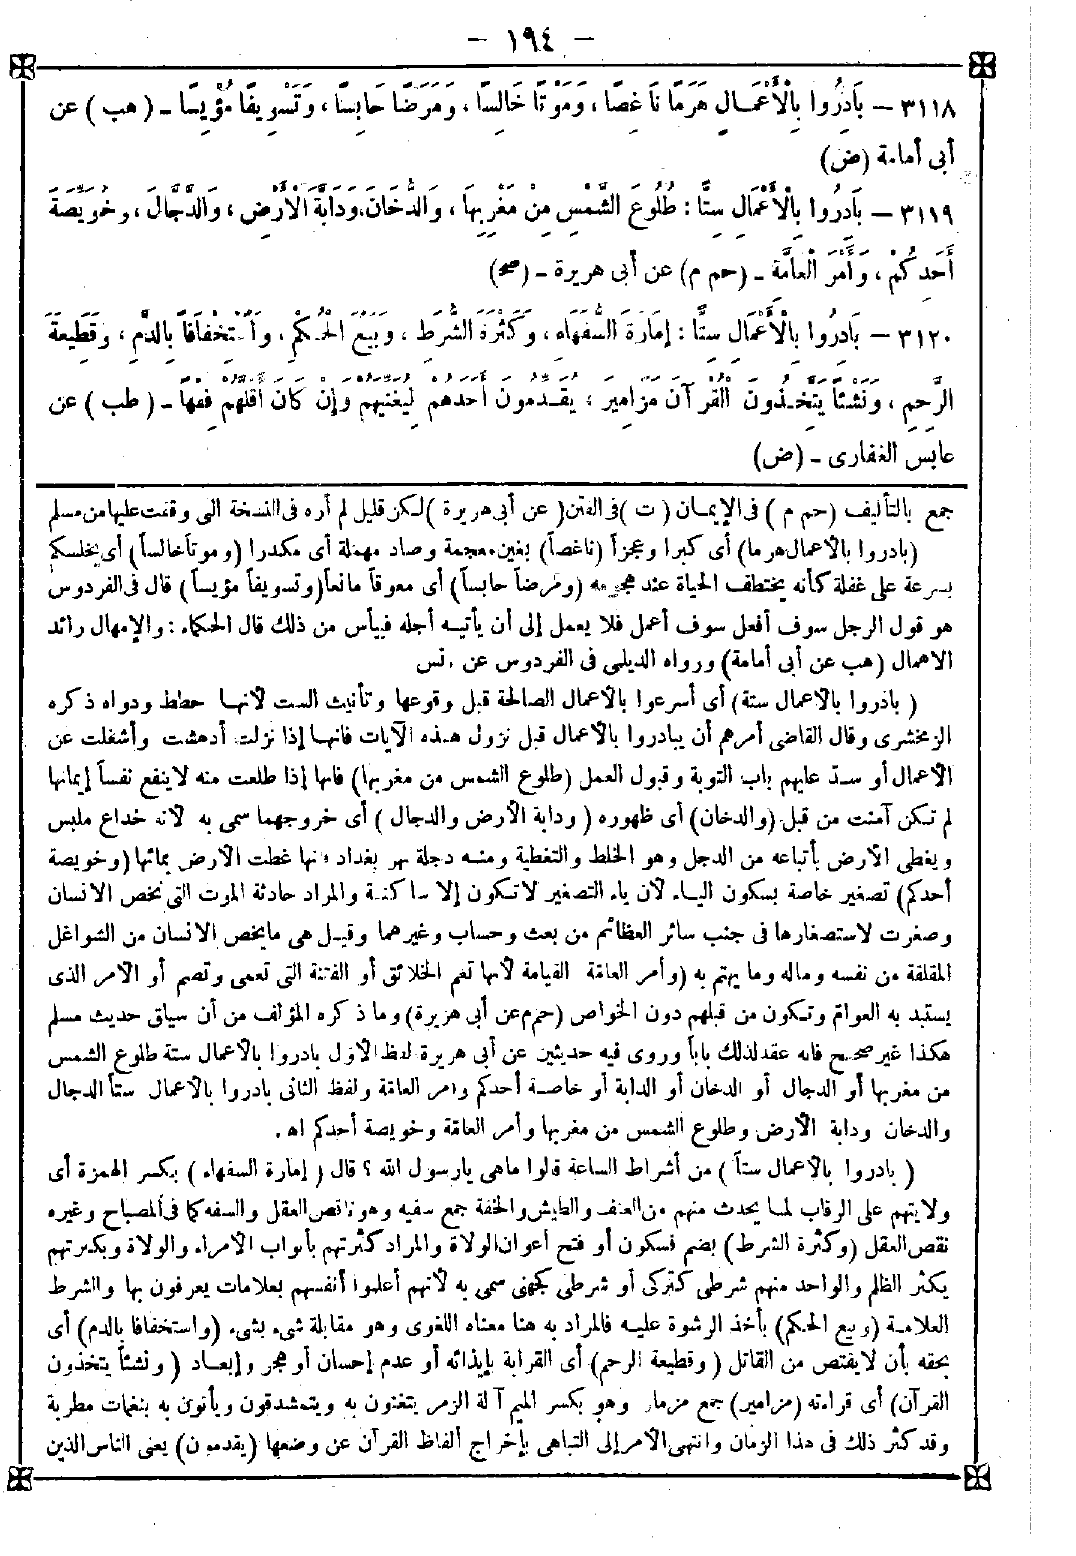 - ١٩٤ -
٣١١٨ - بَادِرُوا بِالْأَعْمَالِ هَرَمًا نَاغِصًا، وَمَوْتًا خَالِسًا، وَمَرَضًا حَابِسًا، وَتَسْوِيفًا مُؤْيِسًا - (هب) عن
أبى أمامة (ض)
٣١١٩ - بَادِرُوا بِالْأَعْمَالِ سِتًّا: طُلُوعَ الشَّمْسِ مِنْ مَغْرِبِهَا، وَالدُّخَانَ، وَدَابَّةَ الْأَرْضِ، وَالدَّجَّالَ، وَخُوَيْصَّةَ
أَحَدِكُمْ، وَأَمْرَ الْعَامَّةِ - (حم م) عن أبى هريرة - (صح)
٣١٢٠ - بَادِرُوا بِالْأَعْمَالِ سِتًّا: إِمَارَةَ السُّفَهَاءِ، وَكَثْرَةَ الشُّرَطِ، وَبَيْعَ الْحُكْمِ، وَاسْتِخْفَافًا بِالدَّمِ، وَقَطِيعَةَ
الرَّحِمِ، وَنَشْئًا يَتَّخِذُونَ الْقُرْآنَ مَزَامِيرَ، يُقَدِّمُونَ أَحَدَهُمْ لِيُغَنِّيَهُمْ وَإِنْ كَانَ أَقَلَّهُمْ فِقْهًا - (طب) عن
عابس الغفارى - (ض)
جمع بالتأليف (حم م) فى الإيمان (ت) فى الفتن (عن أبى هريرة) لكن قليل لم أره فى النسخة التى وقفت عليها من مسلم
(بادروا بالاعمال هرما) أى كبرا وعجزاً (ناغصاً) بغين معجمة وصاد مهملة أى مكدرا (وموتاً خالساً) أى يخلسكم
بسرعة على غفلة كأنه يختطف الحياة عند هجومه (ومرضاً حابساً) أى معوقاً مانعاً (وتسويفاً مؤيساً) قال فى الفردوس
هو قول الرجل سوف أفعل سوف أعمل فلا يعمل إلى أن يأتيه أجله فييأس من ذلك قال الحكماء: والإمهال رائد
الاهمال (هب عن أبى أمامة) ورواه الديلمى فى الفردوس عن أنس
(بادروا بالاعمال ستة) أى أسرعوا بالأعمال الصالحة قبل وقوعها وتأنيث الست لأنها خطط ودواه ذكره
الزمخشرى وقال القاضى أمرهم أن يبادروا بالأعمال قبل نزول هذه الآيات فانها إذا نزلت أدهشت وأشغلت عن
الأعمال أو سدّ عليهم باب التوبة وقبول العمل (طلوع الشمس من مغربها) فانها إذا طلعت منه لا ينفع نفساً إيمانها
لم تكن آمنت من قبل (والدخان) أى ظهوره (ودابة الأرض والدجال) أى خروجهما سمى به لأنه خداع ملبس
ويغطى الأرض بأتباعه من الدجل وهو الخلط والتغطية ومنه دجلة نهر بغداد فانها غطت الأرض بمائها (وخويصة
أحدكم) تصغير خاصة بسكون الياء لأن ياء التصغير لا تكون إلا ساكنة والمراد حادثة الموت التى تخص الانسان
وصغرت لاستصغارها فى جنب سائر العظائم من بعث وحساب وغيرهما وقيل هى ما يخص الانسان من الشواغل
المقلقة من نفسه وماله وما يهتم به (وأمر العامة) القيامة لأنها تعم الخلائق أو الفتنة التى تعمى وتصم أو الامر الذى
يستبد به العوامّ وتكون من قبلهم دون الخواص (حم م عن أبى هريرة) وما ذكره المؤلف من أن سياق حديث مسلم
هكذا غير صحيح فانه عقد لذلك باباً وروى فيه حديثين عن أبى هريرة لفظ الأول بادروا بالأعمال ستة طلوع الشمس
من مغربها أو الدجال أو الدخان أو الدابة أو خاصة أحدكم وأمر العامّة ولفظ الثانى بادروا بالأعمال ستاً الدجال
والدخان ودابة الأرض وطلوع الشمس من مغربها وأمر العامّة وخويصة أحدكم اه.
(بادروا بالأعمال ستاً) من أشراط الساعة قالوا ماهى يارسول الله؟ قال (إمارة السفهاء) بكسر الهمزة أى
ولايتهم على الرقاب لما يحدث منهم من العنف والطيش والخفة جمع سفيه وهو ناقص العقل والسفه كما فى المصباح وغيره
نقص العقل (وكثرة الشرط) بضم فسكون أو فتح أعوان الولاة والمراد كثرتهم بأبواب الأمراء والولاة وبكثرتهم
يكثر الظلم والواحد منهم شرطى كتركى أو شرطى كجهنى سمى به لأنهم أعلموا أنفسهم بعلامات يعرفون بها والشرط
العلامة (وبيع الحكم) بأخذ الرشوة عليه فالمراد به هنا معناه اللغوى وهو مقابلة شىء بشىء (واستخفافا بالدم) أى
بحقه بأن لا يقتص من القاتل (وقطيعة الرحم) أى القرابة بإيذائه أو عدم إحسان أو هجر وإبعاد (ونشئاً يتخذون
القرآن) أى قراءته (مزامير) جمع مزمار وهو بكسر الميم آلة الزمر يتغنون به ويتمشدقون ويأتون به بنغمات مطربة
وقد كثر ذلك فى هذا الزمان وانتهى الأمر إلى التباهى بإخراج ألفاظ القرآن عن وضعها (يقدمون) يعنى الناس الذين